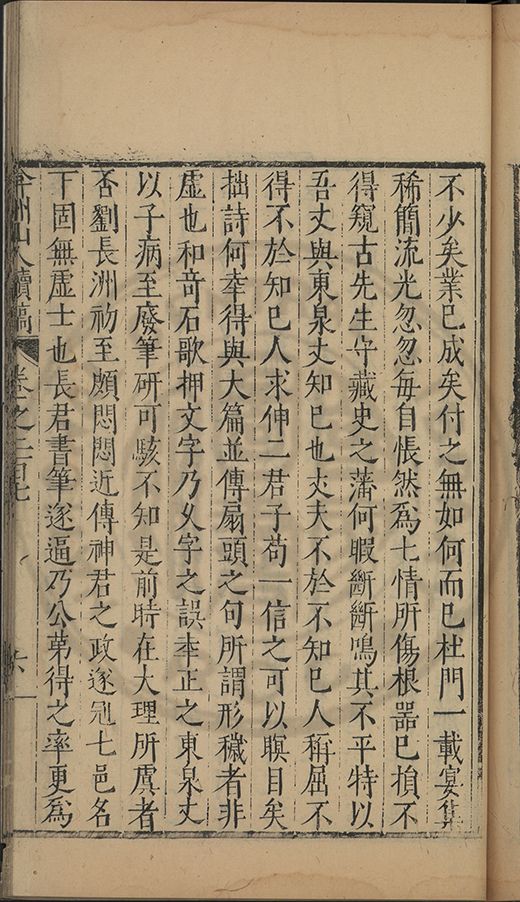 不少矣業已成矣付之無如何而已杜門一載宴集
稀簡流光忽忽每自悵然爲七情所傷根器已損不
得窺古先生守藏史之藩何暇斷斷鳴其不平特以
吾丈與東泉丈知已也夫夫不於不知已人稱屈不
得不於知已人求伸二君子苟一信之可以瞑目矣
拙詩何幸得與大篇並傳扇頭之句所謂形穢者非
虛也和竒石歌押文字乃乂字之誤幸正之東泉丈
以子病至廢筆硏可駭不知是前時在大理所虞者
否劉長洲初至頗悶悶近傳神君之政遂冠七邑名
下固無虛士也長君書筆逐逼乃公苐得之率更爲
弇州山人續稿 卷之二百七 六